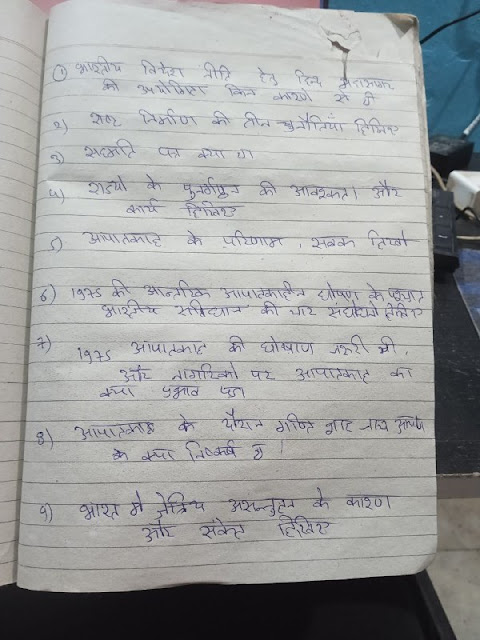 1) भारतीय विदेश नीति हेतु हिन्द महासागर
की उपयोगिता किन कारणो से थी
2) राष्ट्र निर्माण की तीन चुनौतियाँ लिखिए
3) सहमति पत्र क्या था
4) राज्यो के पुनर्गठन की आवश्कता और
कार्य लिखिए
5) आपातकाल के परिणाम, सबक लिखो
6) 1975 की आन्तरिक आपातकालीन घोषणा के पश्चात
भारतीय संविधान की चार संशोधनो लिखिए
7) 1975 आपातकाल की घोषाणा जरूरी थी,
और नागरिको पर आपातकाल का
क्या प्रभाव पड़ा
8) आपातकाल के दौरान गठित शाह जांच आयोग
के क्या निष्कर्ष थे!
9) भारत मे क्षेत्रिय असन्तुलन के कारण
और संकेत लिखिए